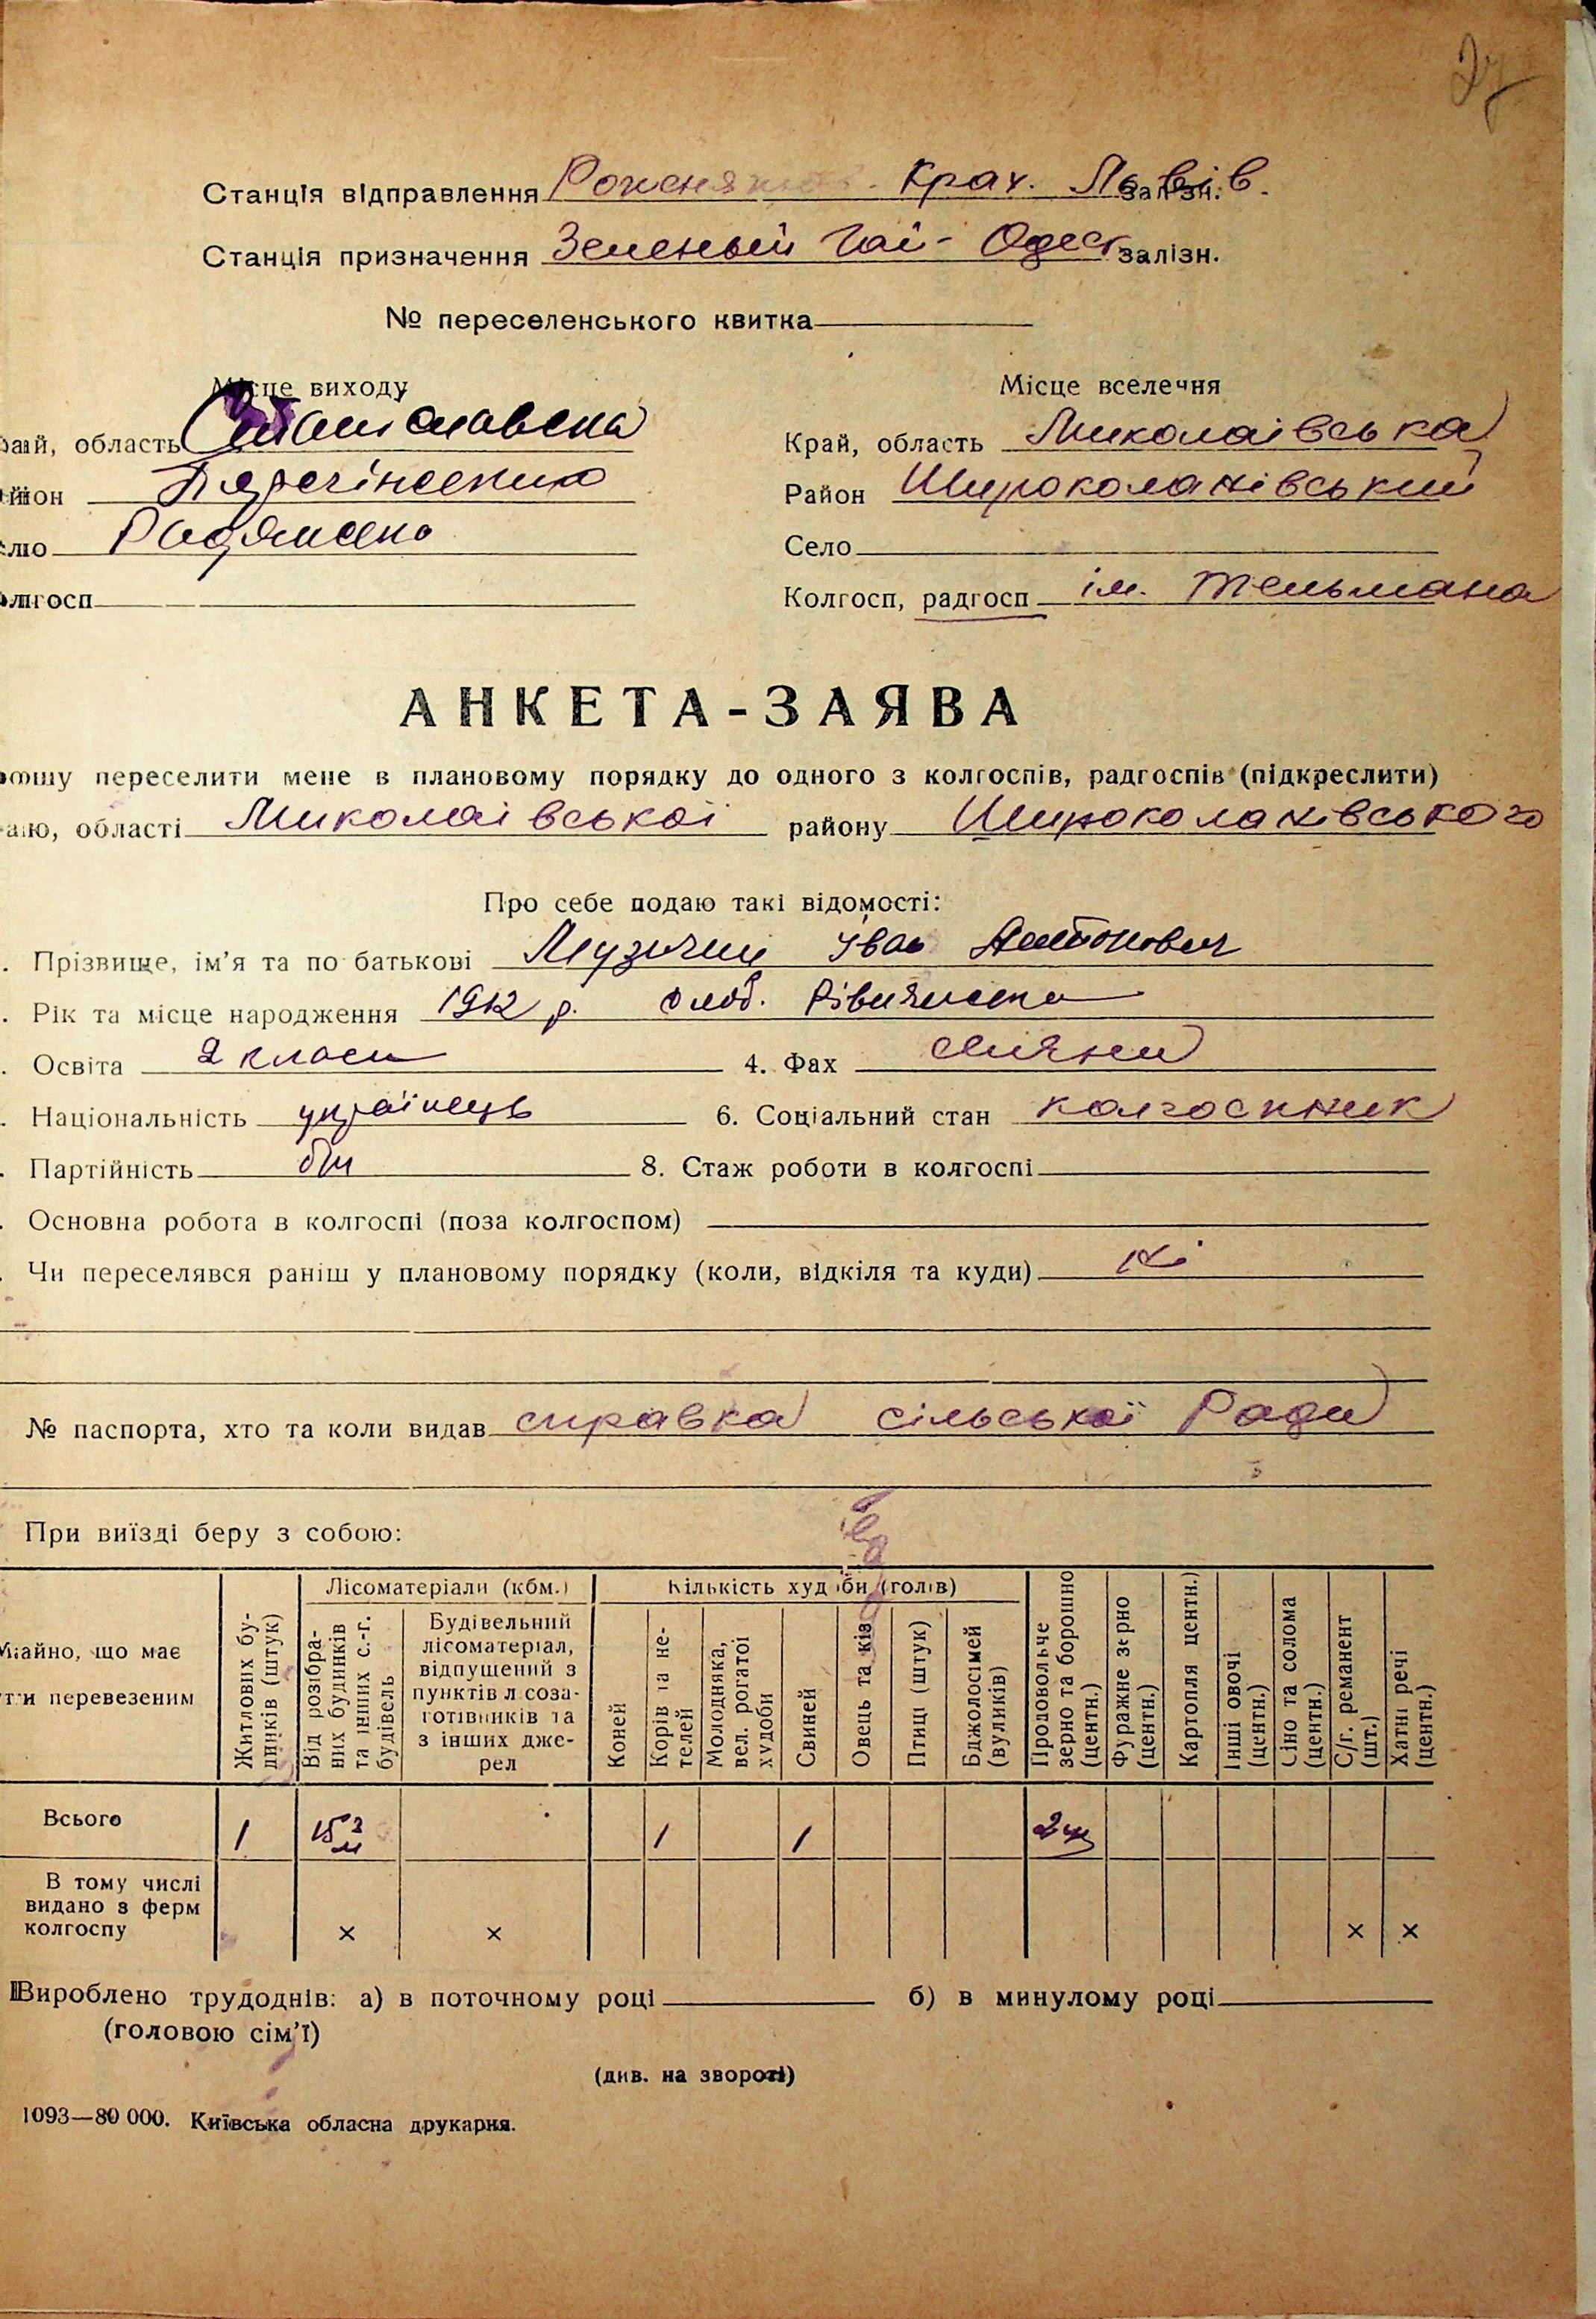 27
Станція відправлення Рожнятов. Крач. Львів. залізн.
Станція призначення Зеленый Гай - Одес залізн.
№ переселенського квитка
Місце виходу
Місце вселення
край, область Станіславська
Край, область Миколаївська
район Перегінський
Район Широколанівський
село Радянське
Село
колгосп
Колгосп, радгосп ім. Тельмана
АНКЕТА-ЗАЯВА
Прошу переселити мене в плановому порядку до одного з колгоспів, радгоспів (підкреслити)
краю, області Миколаівської району Широколанівського
Про себе подаю такі відомості:
. Прізвище, ім’я та по батькові Іван Антонович
. Рік та місце народження 1912 р. слоб. Рівнянська
. Освіта 2 класи 4. Фах
. Національність українець 6. Соціальний стан колгоспник
. Партійність бп 8. Стаж роботи в колгоспі
. Основна робота в колгоспі (поза колгоспом)
. Чи переселявся раніш у плановому порядку (коли, відкіля та куди) Ні
№ паспорта, хто та коли видав справка сільської Ради
При виїзді беру з собою:
Майно, що має
бути перевезеним
Житлових будинків (штук)
Лісоматеріали (кбм.)
Від розібраних будинків та інших с.-г. будівель
Будівельний лісоматеріал, відпущений з пунктів лісозаготівників та з інших джерел
Кількість худоби (голів)
Коней
Корів та нетелей
Молодняка, вел. рогатої худоби
Свиней
Овець та кіз
Птиці (штук)
Бджолосімей (вуликів)
Продовольче зерно та борошно (центн.)
Фуражне зерно (центн.)
Картопля центн.)
Інші овочі (центн.)
Сіно та солома (центн.)
С/г. реманент (шт.)
Хатні речі (центн.)
Всього 1 15 м³ 1 1 2 цн
В тому числі
видано з ферм
колгоспу × × × ×
Вироблено трудоднів: а) в поточному році б) в минулому році
(головою сім’ї)
(див. на звороті)
1093—80 000. Київська обласна друкарня.